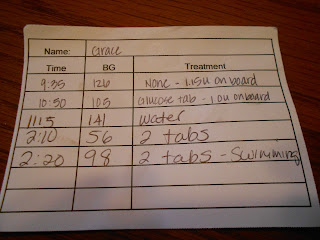 Name: Grace
Time BG Treatment
9:35 126 None - 1.15u on board
10:50 105 Glucose tab - .10u on board
11:15 141 water
2:10 56 2 tabs
2:20 98 2 tabs - Swimming